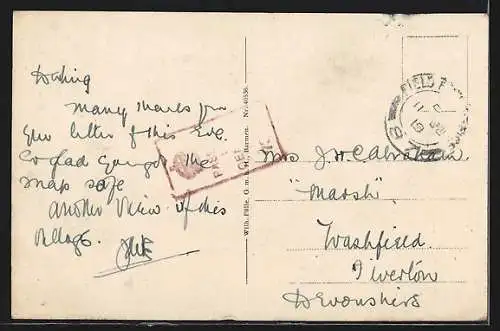 Darling
many thanks for
your letter of this Eve.
So glad you got the
snap safe
another view of this
village.
Wilh. Fülle, G. m. b. H., Barmen. Nr.
FIELD
PASS
CEN
No
Mrs J.H.C. Abraham.
"Marsh",
Washfield.
Tiverton
Devonshire